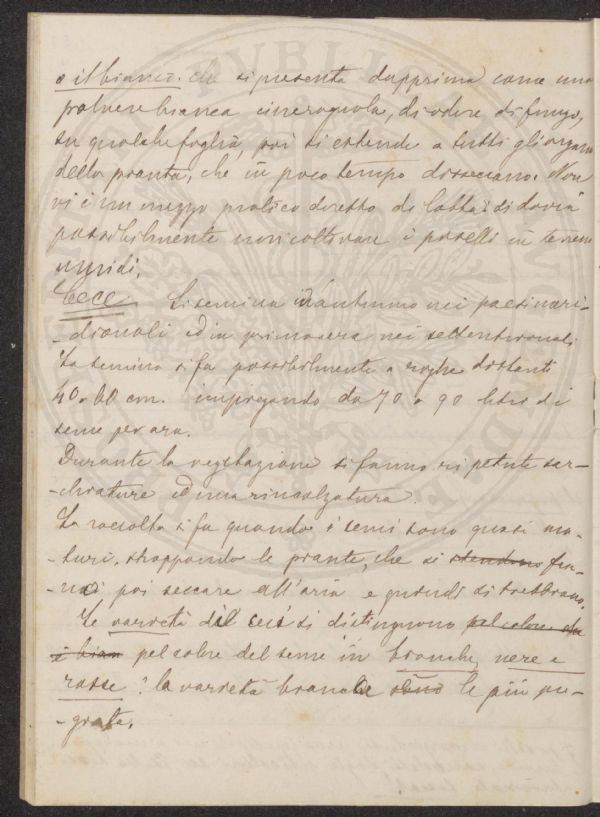 o il bianco. che si presenta dapprima come una
polvere bianca cinerognola, di odore di fungo,
su qualche foglia, poi si estende a tutti gli organi
della pianta, che in poco tempo disseccano. Non
vi è un mezzo pratico diretto di lotta: si dovrà
possibilmente non coltivare i piselli in terreni
umidi.
Cece Si semina in autunno nei paesi meri-
-dionali ed in primavera nei settentrionali.
La semina si fa possibilmente a righe distanti
40-60 cm. impiegando da 70 a 90 litri di
seme per ara.
Durante la vegetazione si fanno ripetute sar-
-chiature ed una rincalzatura.
La raccolta si fa quando i semi sono quasi ma-
turi, strappando le piante, che si stendono fan-
-no poi seccare all'aria e quindi si trebbiano.
Le varietà del ceci si distinguono pel colore da
i bian pel colore del seme in bianche, nere e
rosse: la varietà bianche sono le più pre-
-giate.
PVBLIC